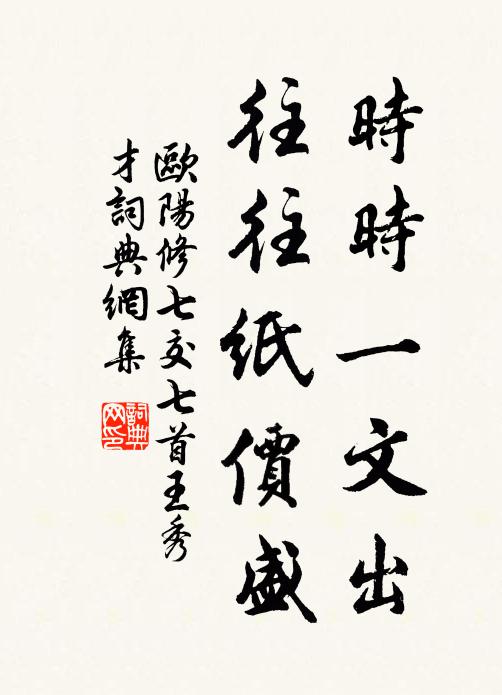 時時一文出
往往紙價盛
歐陽修七交七首王秀
才詞典網集
詞典
网印